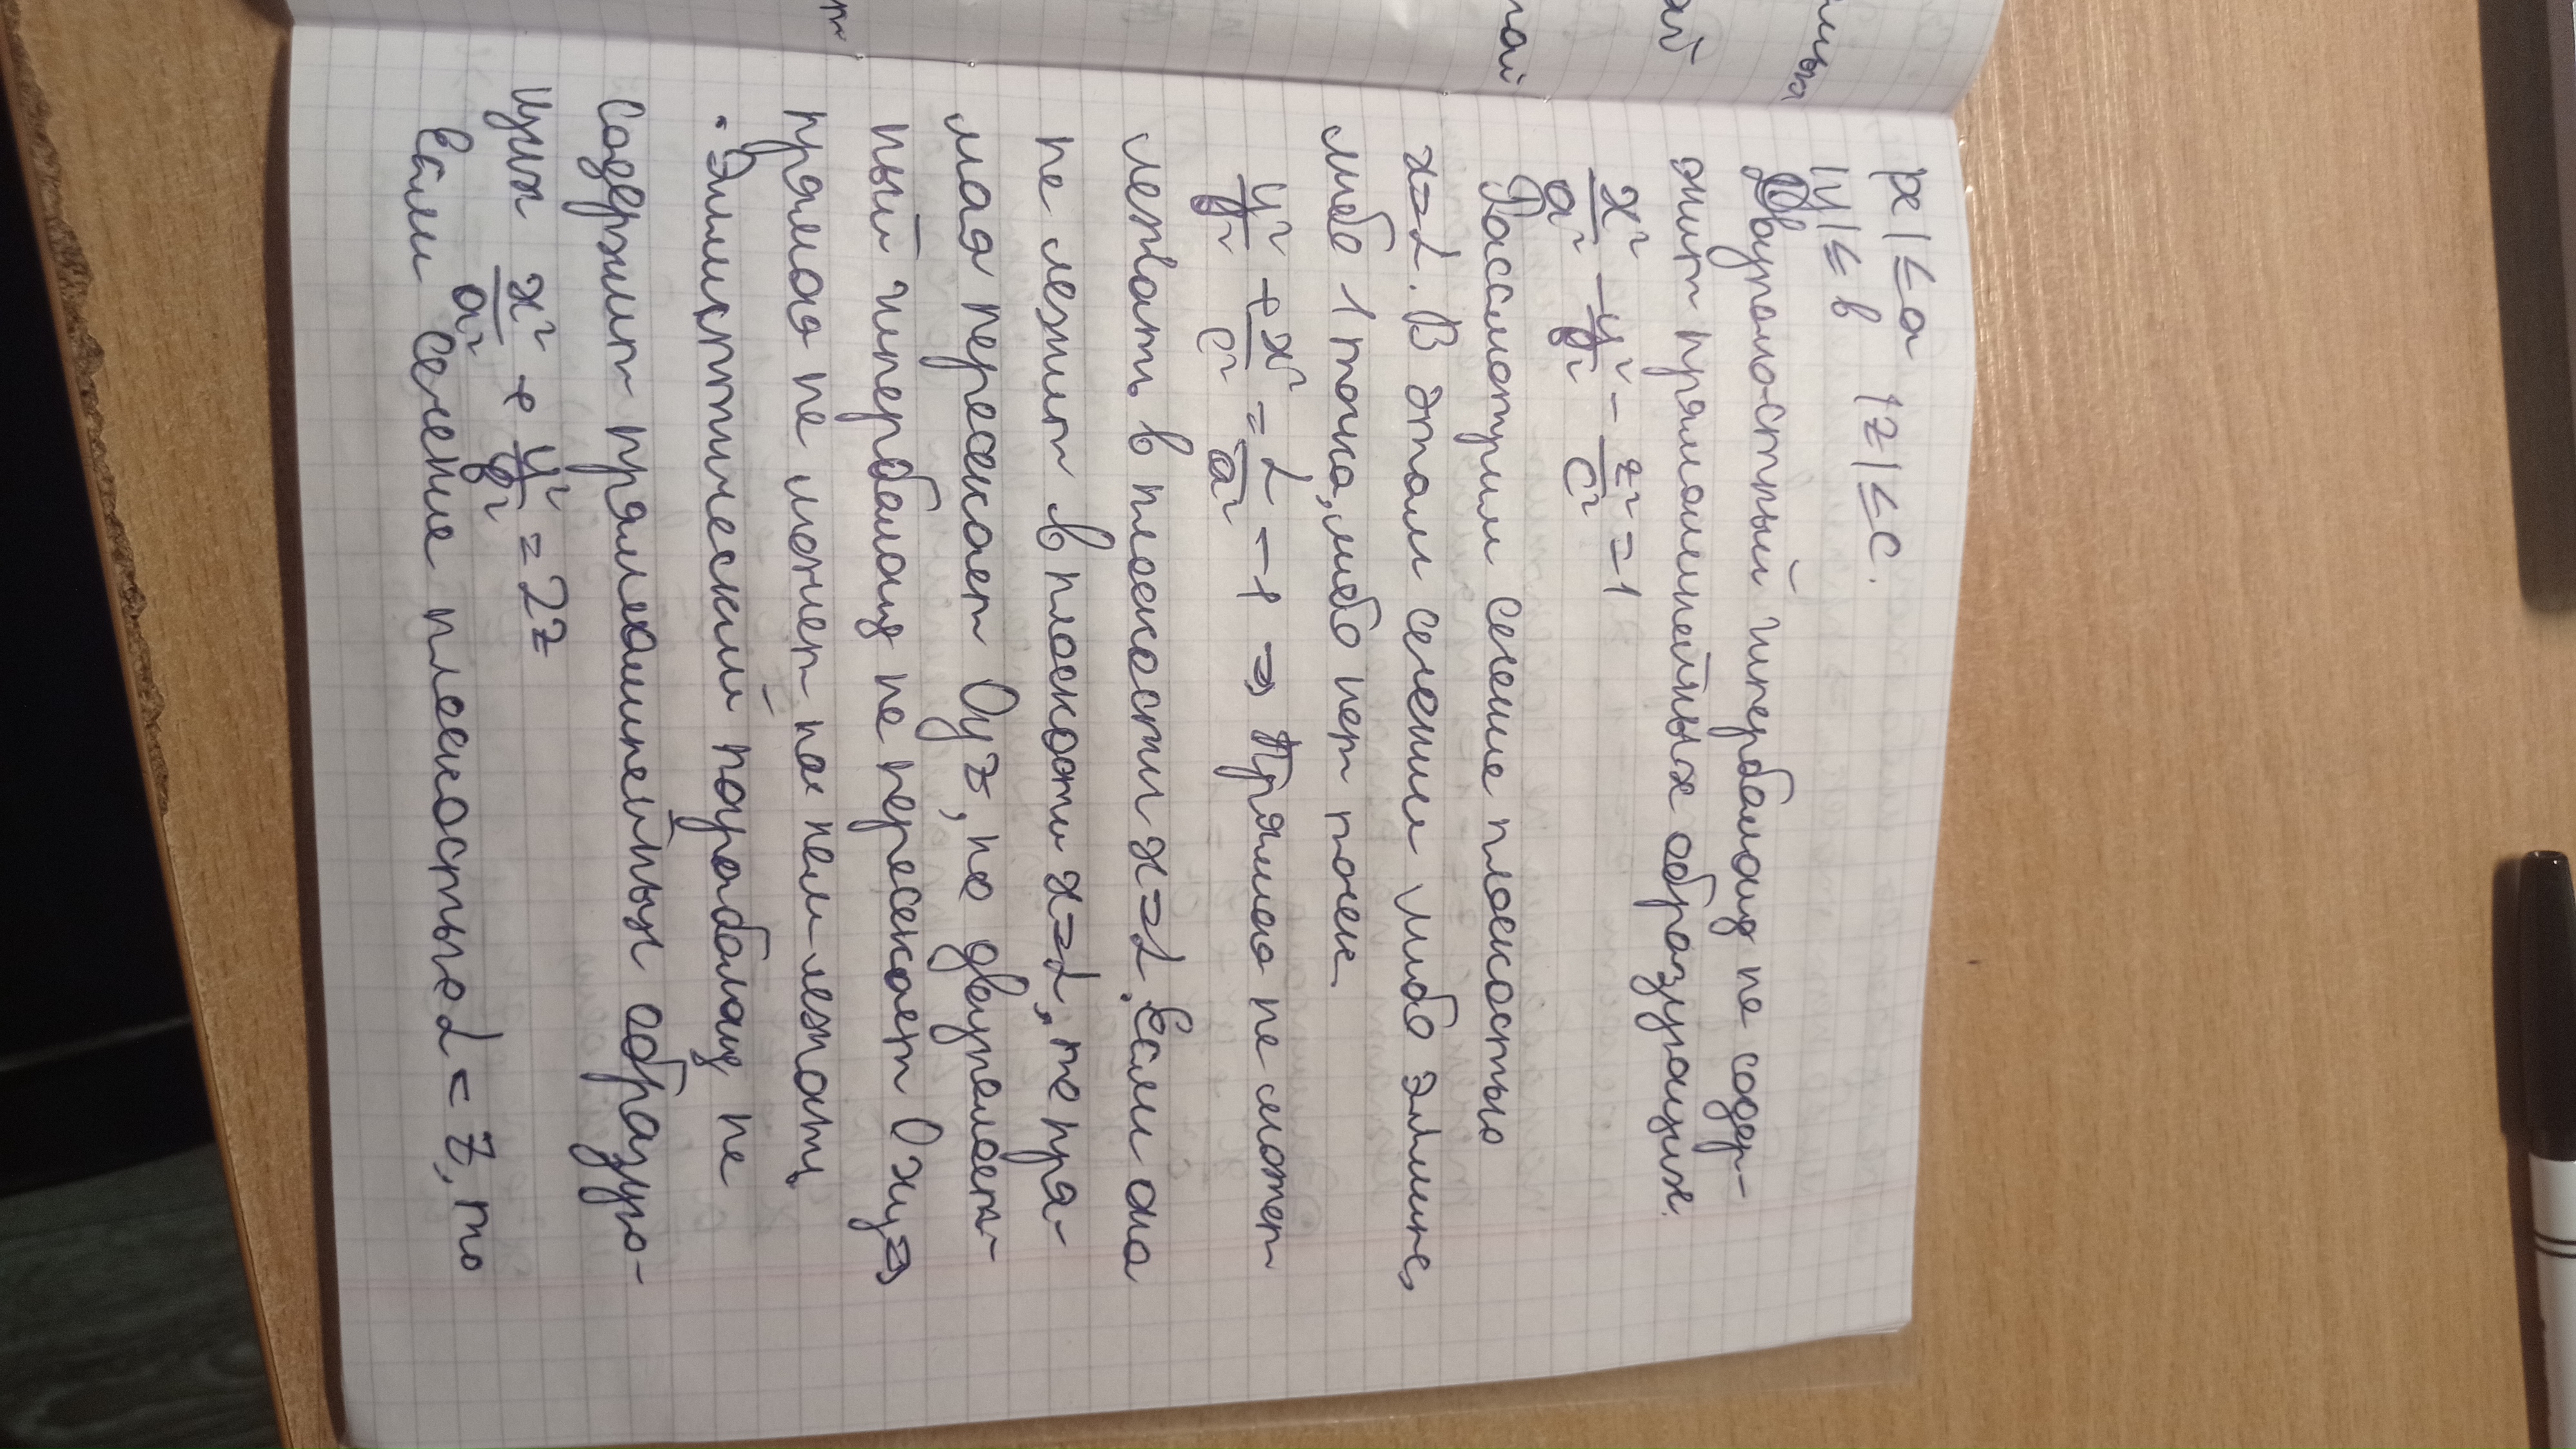 льня
ай
пай
т
|x| ≤ a |z| ≤ c.
|y| ≤ b
Двуполостный гиперболоид не содер-
жит прямолинейных образующих.
x²/a² - y²/b² - z²/c² = 1
Рассмотрим сечение плоскостью
x=α. В этом сечении либо эллипс,
либо 1 точка, либо нет точек.
y²/b² + x²/c² = α/a² - 1 ⇒ Прямая не может
лежать в плоскости x=α. Если она
не лежит в плоскоти x=α, то пря-
мая пересекает Oyz, но двуполост-
ный гиперболоид не пересекает Oxy ⇒
прямая не может на нем лежать
• Эллиптический параболоид не
содержит прямолинейных образую-
щих x²/a² + y²/b² = 2z
Если сечение плоскостью α = z, то